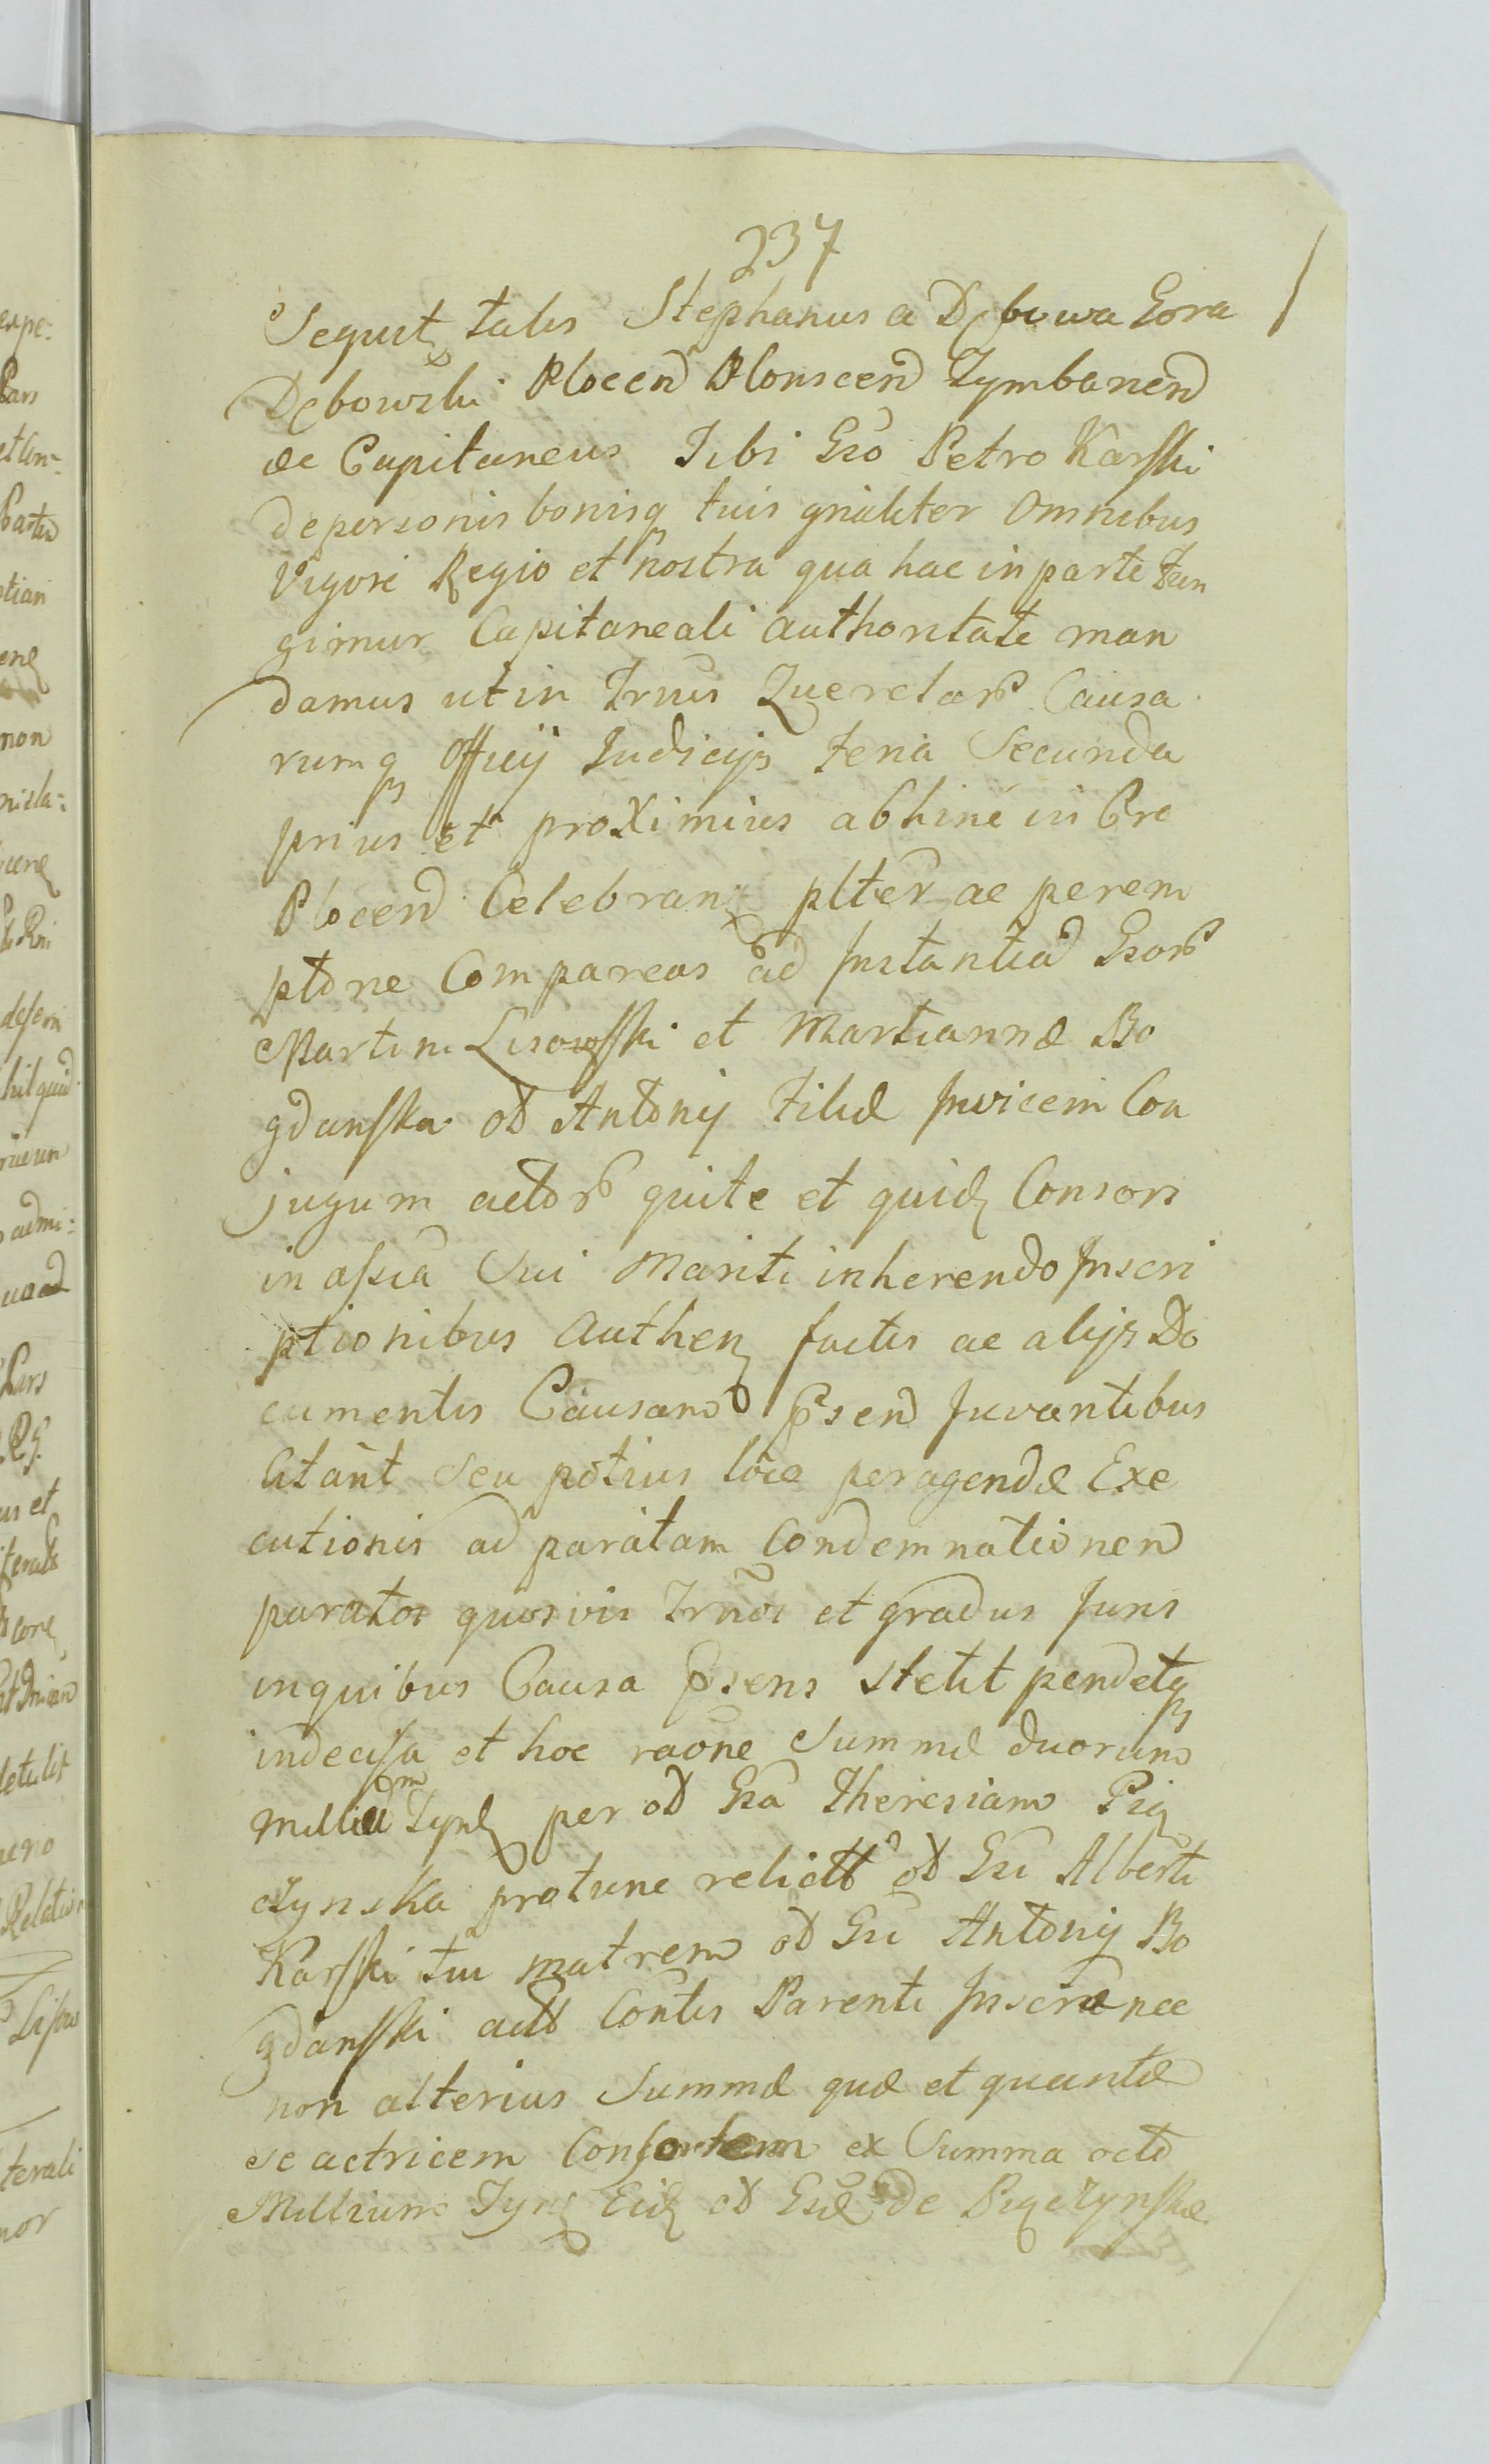 237
Sequit talis Stephanus a Dębowa Gora
Dębowski Plocen Plonscen Zymbanen
&c Capitaneus Tibi Gso Petro Karski
de personis bonisq tuis gnaliter omnibus
Vigore Regio et nostra qua hac in parte Fun
gimur Capitaneali authoritate man
damus ut in Trnis Querelar Causa
rumq Officij Judicijs Feria Secunda
prius et proximius abhinc in Cro
Plocen Celebran plter ac perem
ptorie Compareas ad Instantiam Gsor
Martini Lisowski et Martiannæ Bo
gdanska od Antonij Filiæ Invicem Con
jugum actor quite et quid Consors
in assia Sui Mariti inherendo Inscri
ptionibus Authen factis ac alijs Do
cumentis Causam Psen Juvantibus
Citant Seu potius loco peragendæ Exe
cutionis ad paratam Condemnationem
paratos quosvis Trnos et gradus Juris
inquibus Causa Psens stetit pendetq
indecisa et hoc raone Summæ duorum
Millium Tynf per od Gsa Theresiam Pig
czynska protunc relicta od Gsi Alberti
Karski tui matrem od Gsi Antonij Bo
gdanski act Contis Parenti Inscræ nec
non alterius Summæ quæ et quantæ
se actricem Consortem ex Summa octo
Millium Tynf Eid od Gsæ de Pigczynskæ